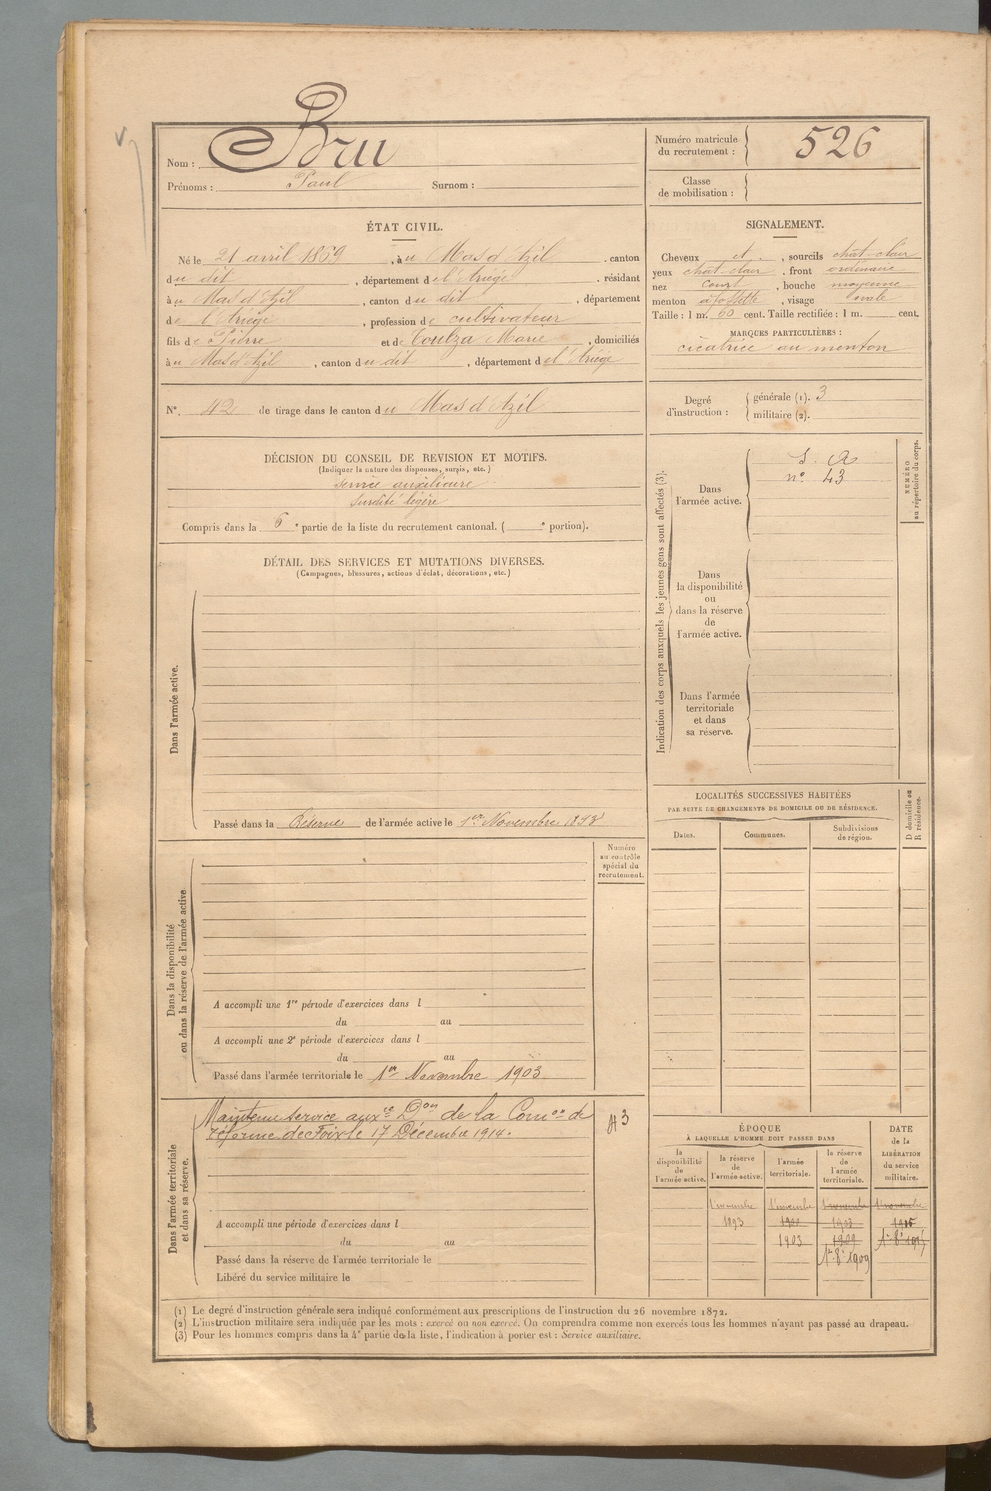 Nom : Bru
Prénoms : Paul Surnom :
Numéro matricule du recrutement : 526
Classe de mobilisation :
ÉTAT CIVIL.
Né le 21 avril 1869, à u Mas d'Azil. canton
d u dit, département d e l'Ariège. résidant
à u Mas d'Azil, canton d u dit, département
d e l'Ariège, profession d e cultivateur
fils d e Pierre et d e Coulza Marie, domiciliés
à u Mas d'Azil, canton d u dit, département d e l'Ariège
N°. 42 de tirage dans le canton d u Mas d'Azil
SIGNALEMENT.
Cheveux et, sourcils chat-clair
yeux chat-clair, front ordinaire
nez court, bouche moyenne
menton à fossette, visage ovale
Taille : 1 m. 60 cent. Taille rectifiée : 1 m. cent.
MARQUES PARTICULIÈRES :
cicatrice au menton
Degré d'instruction : générale (1). 3
militaire (2).
DÉCISION DU CONSEIL DE REVISION ET MOTIFS.
(Indiquer la nature des dispenses, sursis, etc.)
Service auxiliaire
Surdité légère
Compris dans la 6e partie de la liste du recrutement cantonal. ( e portion).
DÉTAIL DES SERVICES ET MUTATIONS DIVERSES.
(Campagnes, blessures, actions d'éclat, décorations, etc.)
Dans l'armée active.
Passé dans la Réserve de l'armée active le 1er Novembre 1893
Indication des corps auxquels les jeunes gens sont affectés (3).
NUMÉRO au répertoire du corps.
Dans l'armée active.
S. A
n° 43
Dans la disponibilité ou dans la réserve de l'armée active.
Dans l'armée territoriale et dans sa réserve.
LOCALITÉS SUCCESSIVES HABITÉES
PAR SUITE DE CHANGEMENTS DE DOMICILE OU DE RÉSIDENCE.
D domicile ou R résidence.
Dates. Communes. Subdivisions de région.
Dans la disponibilité ou dans la réserve de l'armée active
Numéro au contrôle spécial du recrutement.
A accompli une 1re période d'exercices dans l
du au
A accompli une 2e période d'exercices dans l
du au
Passé dans l'armée territoriale le 1er Novembre 1903
Dans l'armée territoriale et dans sa réserve.
Maintenu service auxre Don de la Comon de
réforme de Foix le 17 Décembre 1914.
A accompli une période d'exercices dans l
du au
Passé dans la réserve de l'armée territoriale le
Libéré du service militaire le
ÉPOQUE
À LAQUELLE L'HOMME DOIT PASSER DANS
DATE de la LIBÉRATION du service militaire.
la disponibilité de l'armée active.
la réserve de l'armée active.
l'armée territoriale.
la réserve de l'armée territoriale.
1 novembre 1 novembre 1 novembre 1 novembre
1893
1903
1909
1er 8bre 1909
(1) Le degré d'instruction générale sera indiqué conformément aux prescriptions de l'instruction du 26 novembre 1872.
(2) L'instruction militaire sera indiquée par les mots : exercé ou non exercé. On comprendra comme non exercés tous les hommes n'ayant pas passé au drapeau.
(3) Pour les hommes compris dans la 4e partie de la liste, l'indication à porter est : Service auxiliaire.